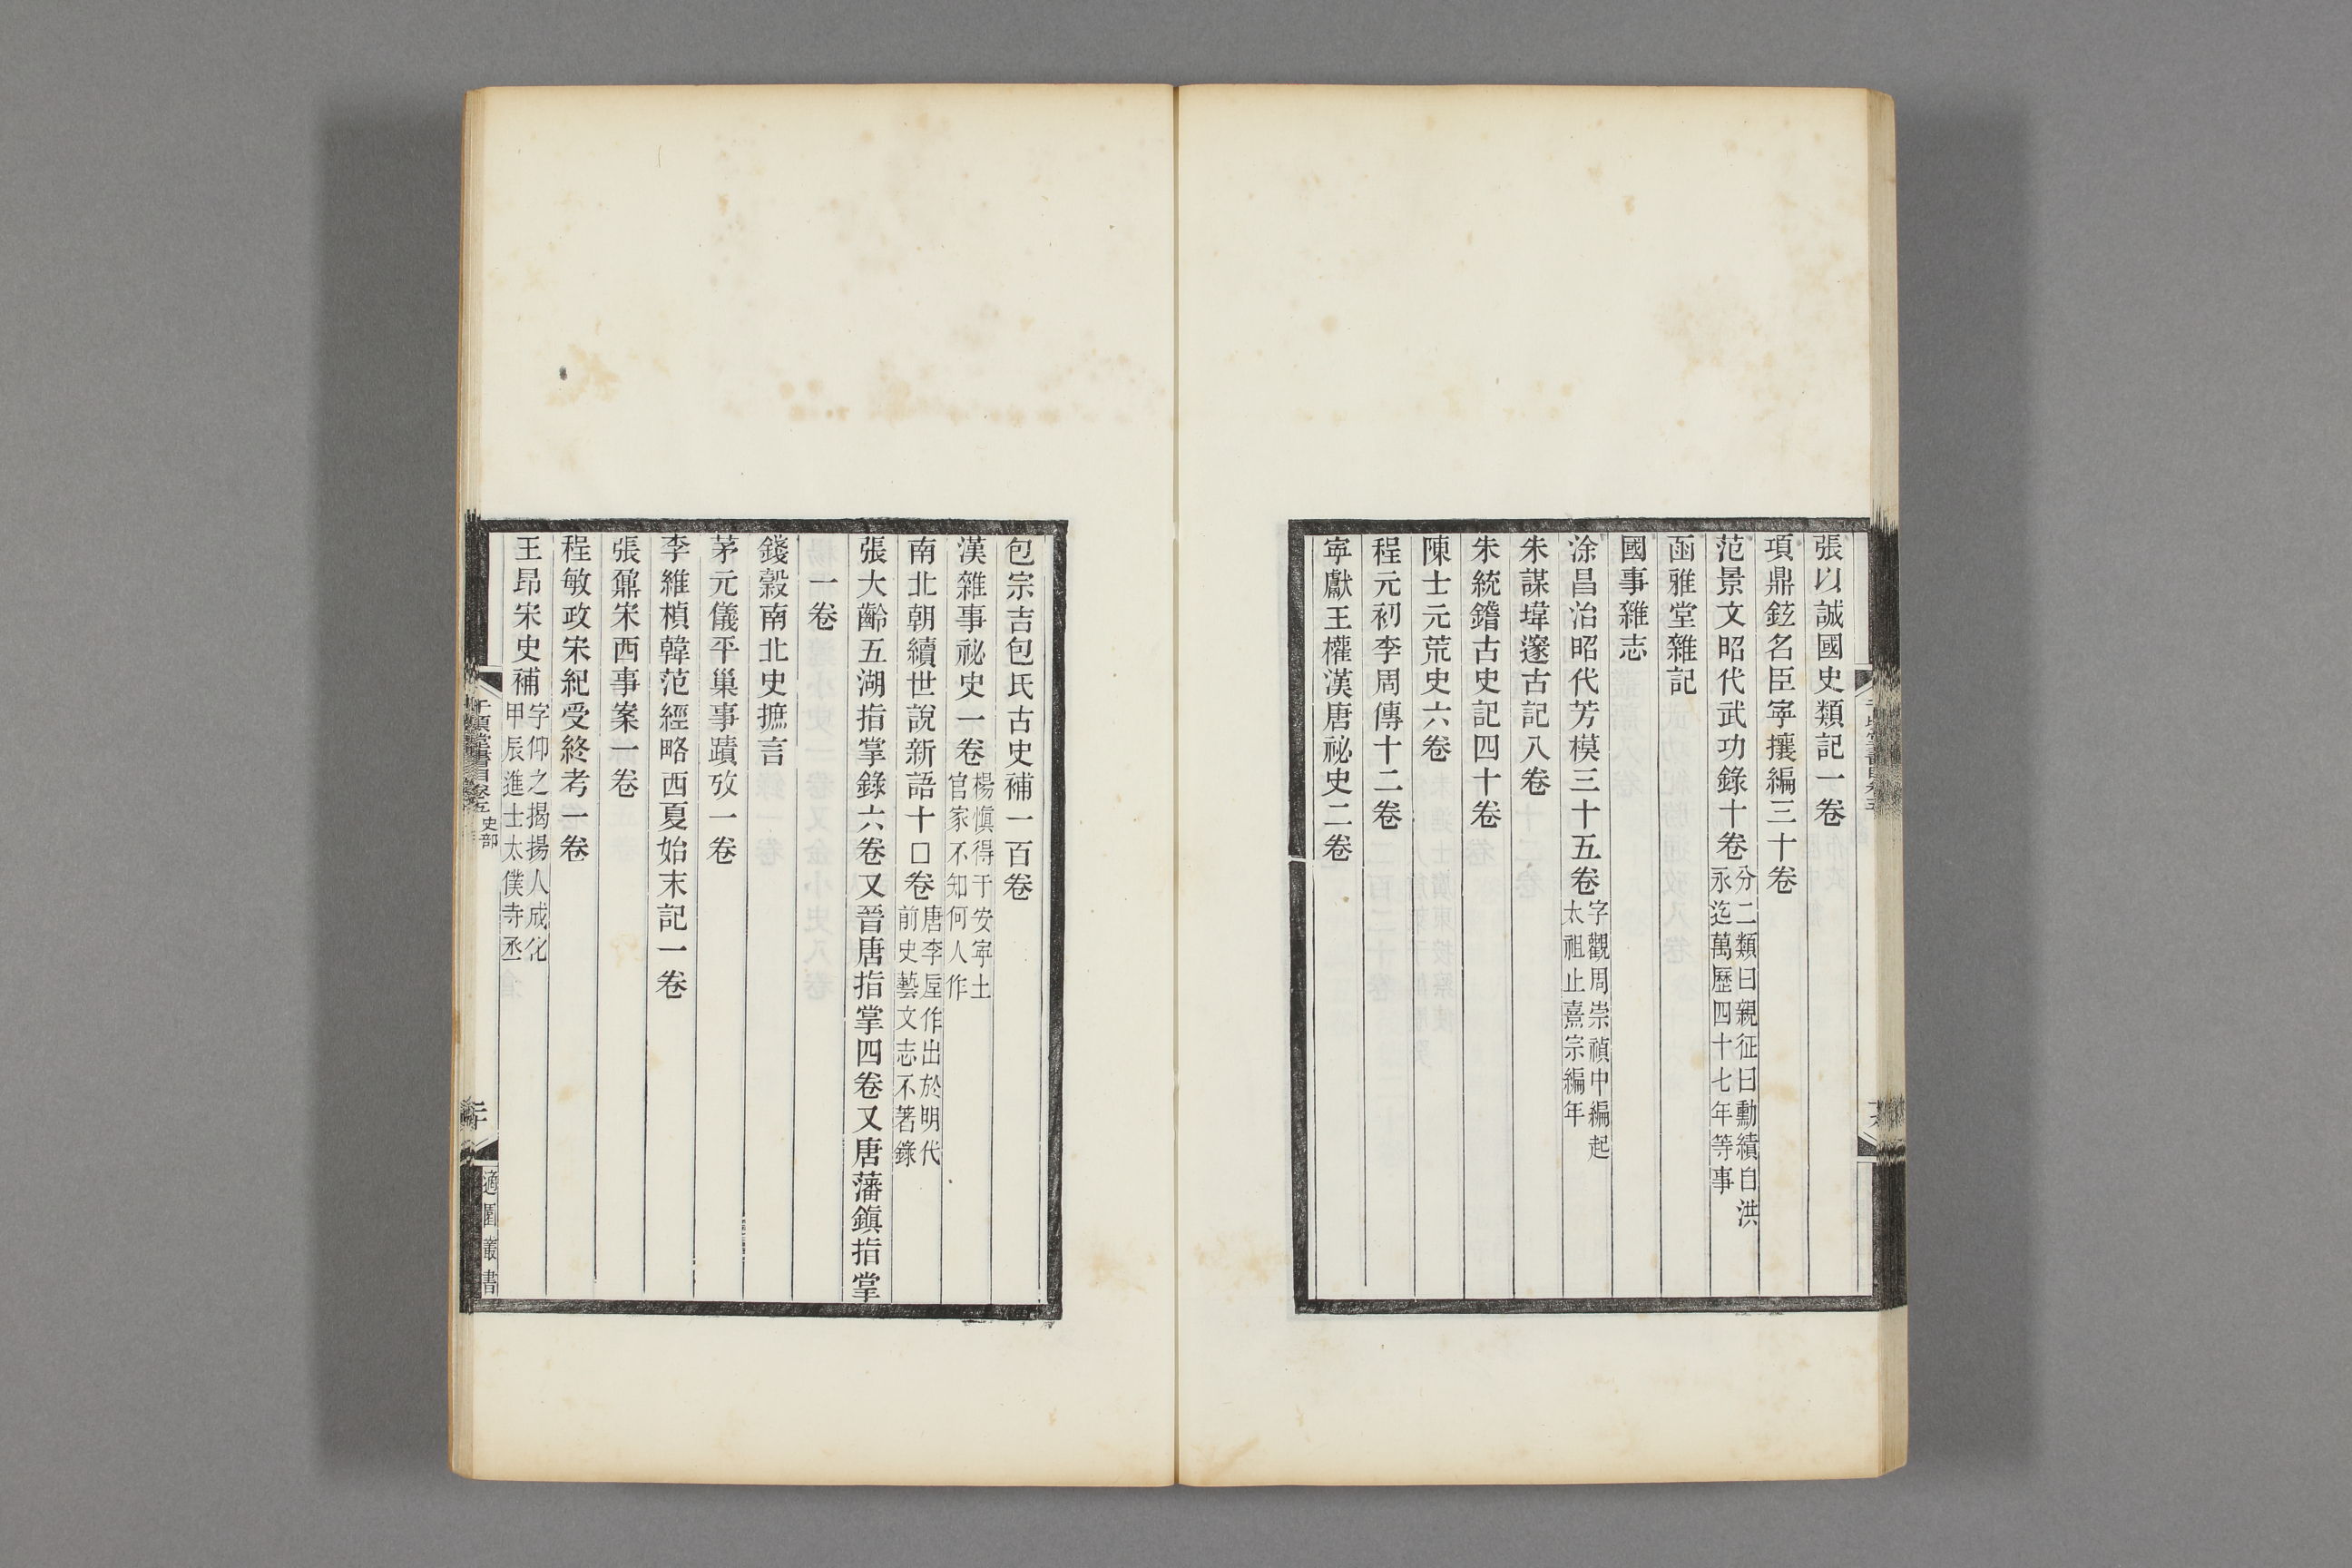 張以誠國史類記一卷
項鼎鉉名臣寜攘編三十卷
范景文昭代武功錄十卷分二類曰親征曰勳績自洪永迄萬歷四十七年等事
函雅堂雜記
國事雜志
涂昌治昭代芳模三十五卷字觀周崇禎中編起太祖止熹宗編年
朱謀㙔邃古記八卷
朱統鐕古史記四十卷
陳士元荒史六卷
程元初季周傳十二卷
寜獻王權漢唐祕史二卷
包宗吉包氏古史補一百卷
漢雜事祕史一卷楊愼得于安寜土官家不知何人作
南北朝續世說新語十□卷唐李垕作出於明代前史藝文志不著錄
張大齡五湖指掌錄六卷又晉唐指掌四卷又唐藩鎮指掌
一卷
錢穀南北史摭言
茅元儀平巢事蹟攷一卷
李維楨韓范經略西夏始末記一卷
張鼐宋西事案一卷
程敏政宋紀受終考一卷
王昂宋史補字仰之揭揚人成化甲辰進士太僕寺丞
千頃堂書目卷五 史部
適園叢書